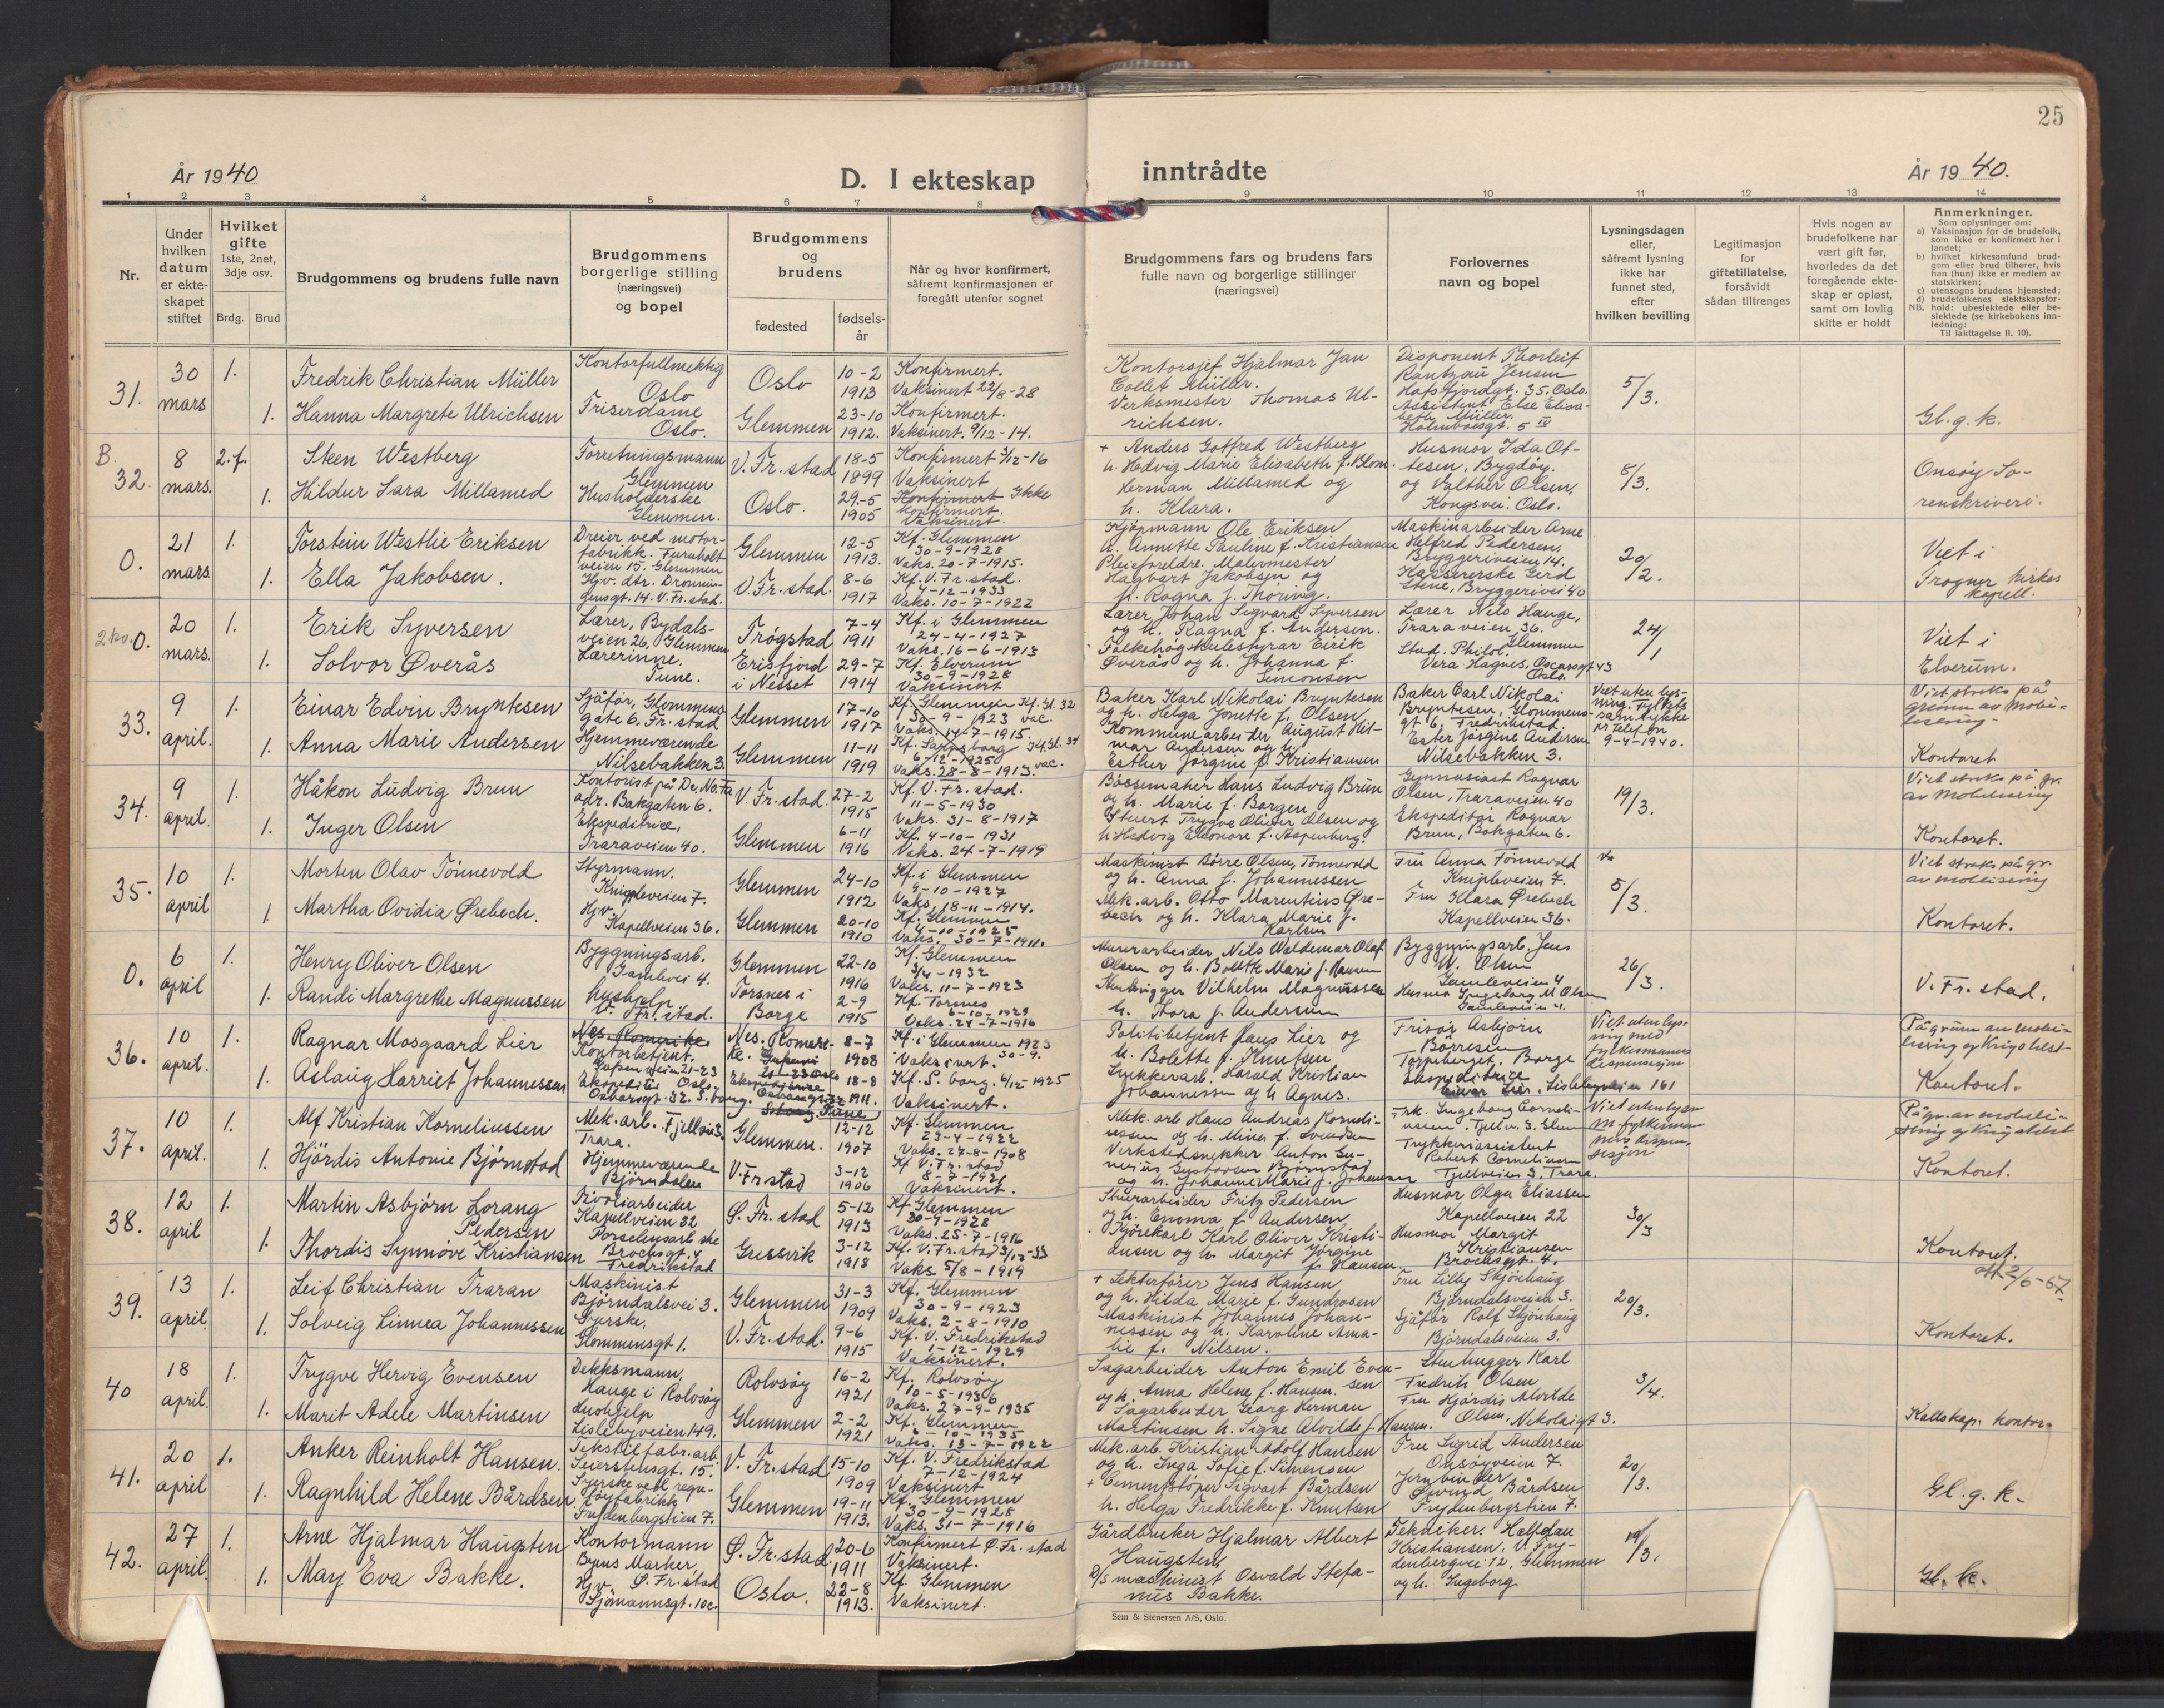 25
År 1940
D. I ekteskap
inntrådte
År 1940.
1 2 3 4 5 6 7 8 9 10 11 12 13 14
Nr.
Under hvilken datum er ekteskapet stiftet
Hvilket gifte 1ste, 2net, 3dje osv.
Brdg. Brud
Brudgommens og brudens fulle navn
Brudgommens borgerlige stilling (næringsvei) og bopel
Brudgommens og brudens
fødested
fødsels-år
Når og hvor konfirmert, såfremt konfirmasjonen er foregått utenfor sognet
Brudgommens fars og brudens fars fulle navn og borgerlige stillinger (næringsvei)
Forlovernes navn og bopel
Lysningsdagen eller, såfremt lysning ikke har funnet sted, efter hvilken bevilling
Legitimasjon for giftetillatelse, forsåvidt sådan tiltrenges
Hvis nogen av brudefolkene har vært gift før, hvorledes da det foregående ekteskap er opløst, samt om lovlig skifte er holdt
Anmerkninger.
Som oplysninger om:
a) Vaksinasjon for de brudefolk, som ikke er konfirmert her i landet;
b) hvilket kirkesamfund brudgom eller brud tilhører, hvis han (hun) ikke er medlem av statskirken;
c) utensogns brudens hjemsted;
d) brudefolkenes slektskapsforhold: ubeslektede eller beslektede (se kirkebokens innledning:
NB.
Til iakttagelse II. 10).
31. 30 mars 1. Fredrik Christian Müller Kontorfullmektig Oslo Oslo 10-2 1913 Konfirmert. Vaksinert 22/8-28
1. Hanna Margrete Ulrichsen Friserdame Oslo. Glemmen 23-10 1912. Konfirmert. Vaksinert. 9/12-14.
Kontorsjef Hjalmar Jan Collet Müller. Verksmester Thomas Ulrichsen.
Disponent Thorleif Rantzau Jensen Hafsfjordgt. 35. Oslo. Assistent Else Elisabeth Müller. Holmboesgt. 5 IV
5/3. Gl. g. k.
B. 32. 8 mars. 2. f. Sten Westberg Forretningsmann Glemmen V. Fr.stad 18-5 1899 Konfirmert 3/12-16 Vaksinert
1. Hildur Sara Millamed Husholderske Glemmen. Oslo. 29-5 1905 Konfirmert Ikke konfirmert. Vaksinert.
+ Anders Gotfred Westberg h. Hedvig Marie Elisabeth f. Blom. Herman Millamed og h. Klara.
Husmor Ida Ottesen, Bygdøy. og Valther Olsen, Kongsvei. Oslo.
8/3. Onsøy Sorenskriveri.
0. 21 mars 1. Torstein Westlie Eriksen Dreier ved motorfabrikk. Furuholtveien 15. Glemmen Glemmen 12-5 1913. Kf. Glemmen 30-9-1928 Vaks. 20-7-1915.
1. Ella Jakobsen. Hjv. dtr. Dronningensgt. 14. V. Fr.stad. V. Fr.stad. 8-6 1917 Kf. V. Fr.stad. 4-12-1933 Vaks. 10-7-1922
Kjøpmann Ole Eriksen h. Annette Pauline f. Kristiansen Pleieforeldre. Malermester Hagbart Jakobsen og h. Ragna f. Thoring.
Maskinarbeider Arne Helfred Pedersen, Bryggeriveien 14. Kassererske Gerd Stene, Bryggeriveien 40
20/2. Viet i Frogner kirkes kapell.
2 ko. 0. 20 mars. 1. Erik Syversen Lærer, Bydalsveien 26, Glemmen Trøgstad 7-4 1911 Kf. i Glemmen 24-4-1927 Vaks. 16-6-1913
1. Solvor Øverås Lærerinne. Tune. Erisfjord i Nesset 29-7 1914 Kf. Elverum 30-9-1928 Vaksinert
Lærer Johan Sigvard Syversen og h. Ragna f. Andersen. Folkehøgskulestyrar Eirik Øverås og h. Johanna f. Simonsen
Lærer Nils Hauge, Traraveien 36. Glemmen Stud. Philol. Vera Hagnes, Oscarsgt 43 Oslo.
24/1 Viet i Elverum.
33. 9 april. 1. Einar Edvin Bryntesen Sjåfør, Glommensgate 6. Fr.stad Glemmen 17-10 1917 Kf. Glemmen Kf. Gl. 32 30-9-1923 vac. Vaks. 14-7-1915.
1. Anna Marie Andersen Hjemmeværende Nilsebakken 3. Glemmen 11-11 1919 Kf. Sarpsborg 6/12-1925 vac. Vaks. 28-8-1913.
Baker Karl Nikolai Bryntesen og h. Helga Jonette f. Olsen, Kommunearbeider August Hilmar Andersen og h. Esther Jørgine f. Kristiansen
Baker Carl Nikolai Bryntesen, Glommensgt 6, Fredrikstad Ester Jørgine Andersen Nilsebakken 3.
Viet uten lysning. Fylkets samtykke pr telefon 9-4-1940.
Viet straks på grunn av mobilisering. Kontoret
34. 9 april. 1. Håkon Ludvig Brun Kontorist på De, No, Fa adr. Bakgaten 6. V. Fr.stad. 27-2 1915 Kf. V. Fr.stad. 11-5-1930 Vaks. 31-8-1917
1. Inger Olsen Ekspeditrice, Traraveien 40. Glemmen 6-11 1916 Kf. 4-10-1931 Vaks. 24-7-1919
Bøssemaker Hans Ludvig Brun og h. Marie f. Borgen. Stuert Trygve Oliver Olsen og h. Hedvig Eleonore f. Aspenberg.
Gymnasiast Ragnar Olsen, Traraveien 40 Ekspeditør Ragnar Brun, Bakgaten 6.
19/3. Viet straks på gr. av mobilisering Kontoret.
35. 10 april 1. Morten Olav Tønnevold Styrmann. Knipleveien 7. Glemmen 24-10 1912 Kf. i Glemmen 9-10-1927 Vaks. 18-11-1914.
1. Martha Ovidia Ørebech. Hjv. Kapellveien 36. Glemmen 20-10 1910 Kf. Glemmen 4-10-1925 Vaks. 30-7-1911.
Maskinist Børre Olsen, Tønnevold og h. Anna f. Johannessen Mek. arb. Otto Marentius Ørebech og h. Klara Marie f. Karlsen
Fru Anna Tønnevold Knipleveien 7. Fru Klara Ørebech Kapellveien 36.
5/3. Viet straks på gr. av mobilisering Kontoret.
0. 6 april 1. Henry Oliver Olsen Byggningsarb. Gamlevei 4. Glemmen 22-10 1916 Kf. Glemmen 3/4-1932 Vaks. 11-7-1923
1. Randi Margrethe Magnussen hushjelp V. Fr.stad. Torsnes i Borge 2-9 1915 Kf. Torsnes 6-10-1929 Vaks. 24-7-1916
Murerarbeider Nils Waldemar Olaf Olsen og h. Bolette Marie f. Hansen Vilhelm Magnussen h. Thora f. Andersen
Byggningsarb. Jens W. Olsen Gamleveien 4 Husmor Ingeborg M. Olsen Gamleveien 4.
26/3. V. Fr.stad.
36. 10 april. 1. Ragnar Mosgaard Lier Nes. Romerike. Kontorbetjent. 21-23 Oslo Nes. Romerike. 8-7 1908 Kf. i Glemmen 1923 30-9. Vaksinert.
1. Aslaug Harriet Johannessen Ekspeditrise Oscarsgt. 32. S.borg. 18-8 1911. Kf. S.borg. 6/12-1925 Vaksinert.
Politibetjent Jens Lier og h. Bolette f. Knutsen Lykkerarb. Harald Kristian Johannessen og h Agnes.
Frisør Asbjørn Børresen Torpeberget, Borge Ekspeditrice Lier, Lislebyveien 161
Viet uten lysning med fylkesmannens dispensasjon
På grunn av mobilisering og krigstilst- Kontoret.
37. 10 april. 1. Alf Kristian Korneliussen Mek. arb. Fjellvei 3. Trara. Glemmen. 12-12 1907 Kf. Glemmen 23-4-1922 Vaks. 27-8-1908
1. Hjördis Antonie Björnstad Hjemmeværende Björndalen V. Fr.stad 3-12 1906 Kf V. Fr.stad 8-7-1921 Vaksinert.
Mek. arb Hans Andreas Korneliussen og h. Mina f. Svendsen Verkstedsnekker Anton Gunerius Gustavsen Bjørnstad og h. Johanne Marie f. Johansen
Frk. Ingeborg Corneliussen. Fjellv. 3. Glem Trykkeriassistent Robert Corneliussen Fjellveien 3, Trara.
Viet uten lysn m. fylkesmannens dispensasjon
På gr. av mobilisering og krigstilst Kontoret.
38. 12 april 1. Martin Asbjørn Lorang Pedersen Tivoliarbeider Kapellveien 22 Ø. Fr.stad 5-12 1913 Kf Glemmen 30-9-1928 Vaks. 25-7-1916
1. Thordis Synnøve Kristiansen Porselensarb.ske Brochsgt. 4 Fredrikstad Gressvik 3-12 1918 Kf. V. Fr.stad 3/12-33 Vaks 5/8-1919
Stuerarbeider Fritz Pedersen og h. Emma f. Andersen Kjørekarl Karl Oliver Kristiansen og h. Margit Jørgine f. Hansen
Husmor Olga Eliassen Kapellveien 22 Husmor Margit Kristiansen Brochsgt. 4.
30/3 Kontoret. att 2/6-67.
39. 13 april. 1. Leif Christian Traran Maskinist Björndalsvei 3. Glemmen 31-3 1909 Kf. Glemmen 30-9-1923 Vaks. 2-8-1910
1. Solveig Linnea Johannessen Syerske, Glommensgt 1. V. Fr.stad. 9-6 1915 Kf. V. Fredrikstad 1-12-1929 Vaksinert.
+ Lekterfører Jens Hansen og h. Hilda Marie f. Gundrosen Maskinist Johannes Johannessen og h. Karoline Amalie f. Nilsen.
Fru Lilly Skjönhaug Bjørndalsveien 3. Sjåfør Rolf Skjönhaug Bjørndalsveien 3.
20/3. Kontoret.
40 18 april. 1. Trygve Hervig Evensen Dekksmann, Hauge i Rolvsøy Rolvsøy 16-2 1921 Kf. Rolvsøy 10-5-1936 Vaks. 27-9-1935
1. Marit Adele Martinsen Hushjelp Lislebyveien 149. Glemmen 2-2 1921 Kf. Glemmen 6-10-1935 Vaks. 13-7-1922
Sagarbeider Anton Emil Evensen og h. Anna Helene f. Hansen. Sagarbeider Georg Herman Martinsen h. Signe Alvilde f. Hansen.
Stenhugger Karl Fredrik Olsen Fru Hjørdis Alvilde Olsen, Nikolaigt 3.
3/4. Kallskap. kontor.
41. 20 april 1. Anker Reinholt Hansen. Tekstilfabr. arb. Seierstensgt. 15. V. Fr.stad 15-10 1909 Kf. V. Fredrikstad 7-12-1924 Vaksinert
1. Ragnhild Helene Bårdsen. Syerske ved regntøyfabrikk Frydenbergstien 7. Glemmen 19-11 1913. Kf. Glemmen 30-9-1928 Vaks. 31-7-1916
Mek. arb. Kristian Adolf Hansen og h. Inga Sofie f. Simensen + Cementstøper Sigvart Bårdsen h. Helga Fredrikke f. Knutsen
Fru Sigrid Andersen Onsøyveien 7. Jernbinder Øivind Bårdsen Frydenbergstien 7.
20/3. Gl. g. k.
42. 27 april. 1. Arne Hjalmar Haugsten Kontormann Byens Marker, Ø. Fr.stad Ø. Fr.stad 20-6 1911 Konfirmert Ø. Fr.stad Vaksinert.
1. May Eva Bakke. Hjv. Sjömannsgt. 10c. Oslo. 22-8 1913. Kf. Glemmen Vaksinert.
Gårdbruker Hjalmar Albert Haugsten D/S maskinist Osvald Stefanus Bakke.
Tekniker. Halfdan Kristiansen, V. Frydenbergvei 12, Glemmen og h. Ingeborg
19/3. Gl. k.
Sem & Stenersen A/S, Oslo.